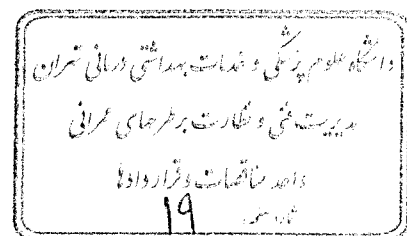 دانشگاه علوم پزشکی و خدمات بهداشتی درمانی تهران
مدیریت فنی و نظارت بر طرحهای عمرانی
واحد مناقصات و قراردادها
شماره صفحه: ۱۹